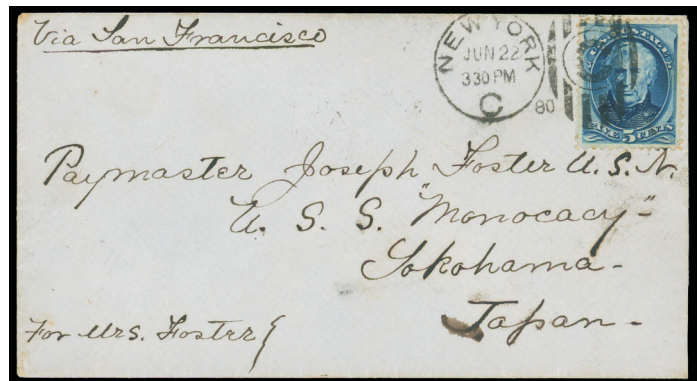 Via San Francisco
NEW YORK
JUN 22
330 PM
C
80
FIVE 5 CENTS
Paymaster Joseph Foster U.S.N.
U. S. S. "Monocacy"-
Yokohama-
Japan-
For Mrs. Foster